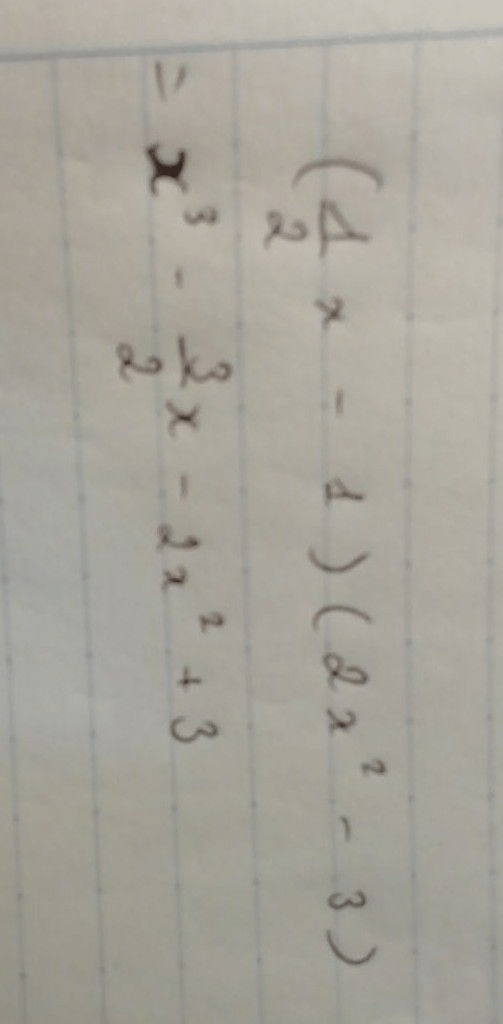 (1/2 x - 1)(2x² - 3)
= x³ - 3/2 x - 2x² + 3